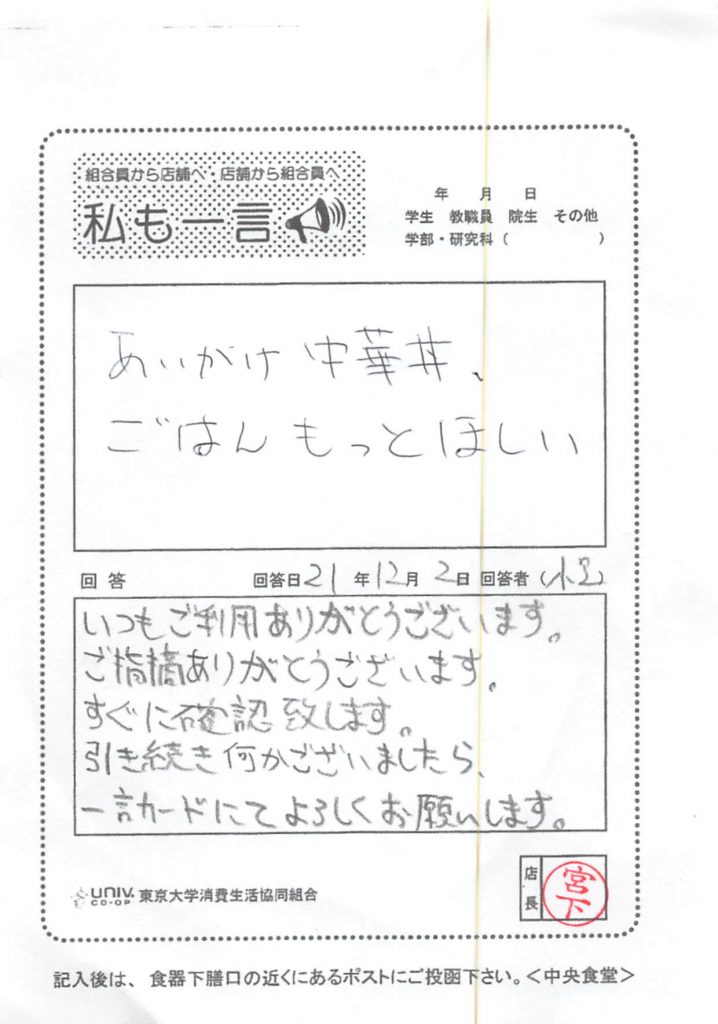 組合員から店舗へ・店舗から組合員へ
私も一言
年 月 日
学生 教職員 院生 その他
学部・研究科( )
あいがけ中華丼、
ごはんもっとほしい
回答 回答日21年12月2日 回答者
いつもご利用ありがとうございます。
ご指摘ありがとうございます。
すぐに確認致します。
引き続き何かございましたら、
一言カードにてよろしくお願いします。
UNIV. CO-OP 東京大学消費生活協同組合
店長 宮下
記入後は、食器下膳口の近くにあるポストにご投函下さい。<中央食堂>